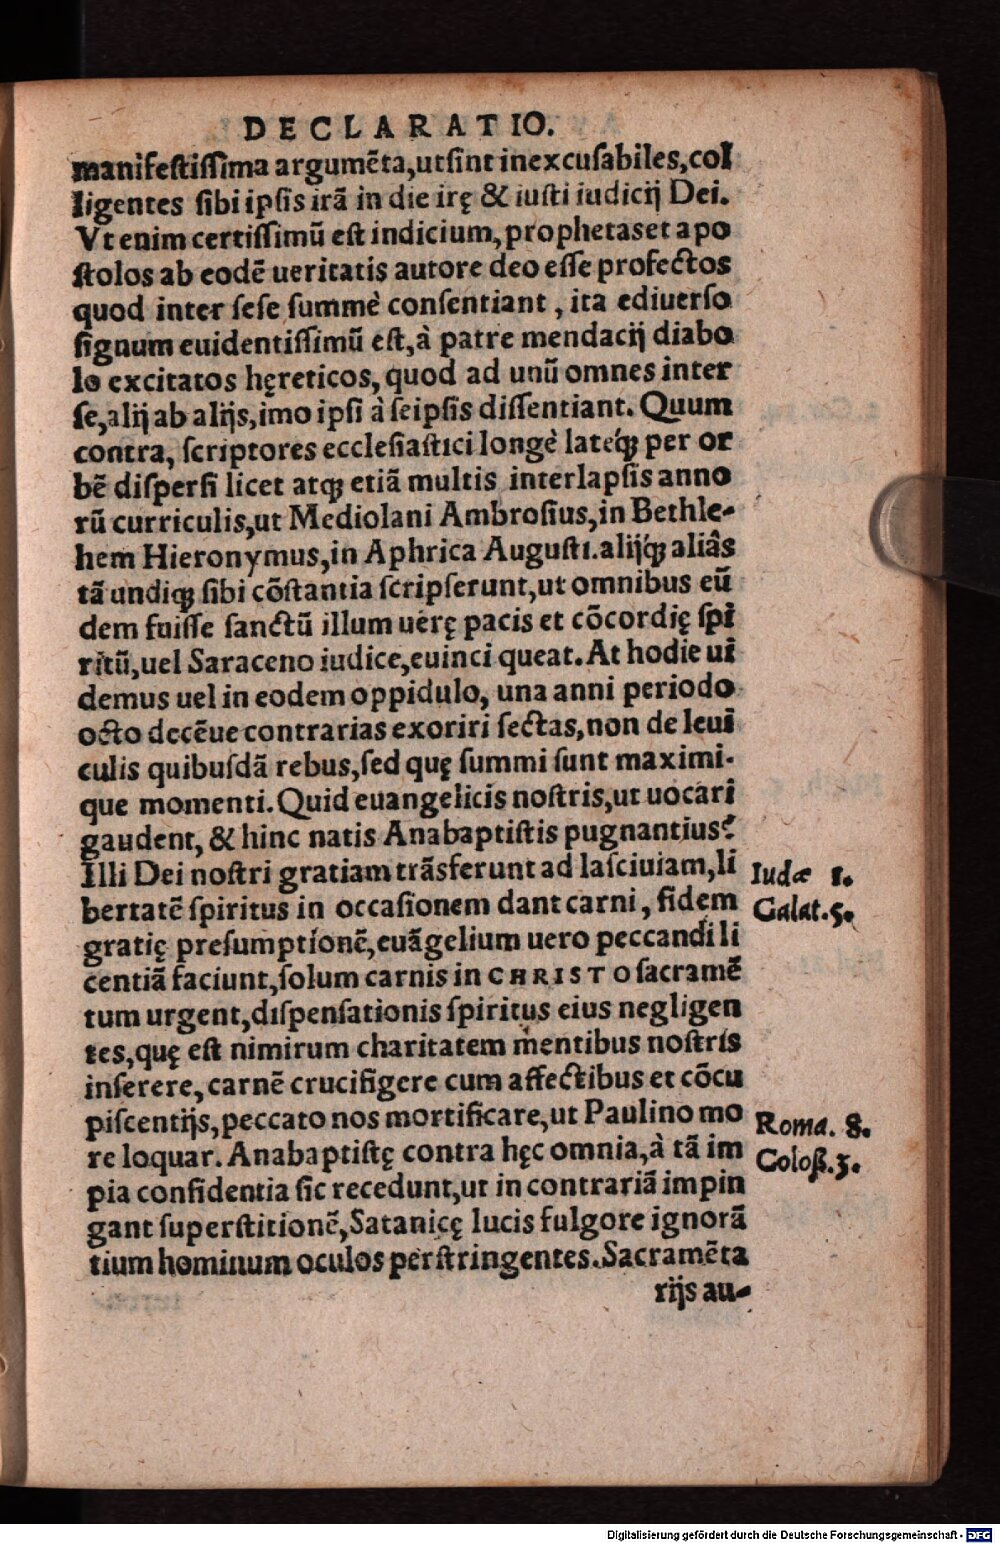 DECLARATIO.
manifestissima argumẽta,utsint inexcusabiles,col
ligentes sibi ipsis irã in die irę & iusti iudicij Dei.
Vt enim certissimũ est indicium,prophetaset apo
stolos ab eodẽ ueritatis autore deo esse profectos
quod inter sese summè consentiant, ita ediuerso
signum euidentissimũ est,à patre mendacij diabo
lo excitatos hęreticos,quod ad unũ omnes inter
se,alij ab alijs,imo ipsi à seipsis dissentiant. Quum
contra, scriptores ecclesiastici longè lateq́ꝫ per or
bẽ dispersi licet atqꝫ etiã multis interlapsis anno
rũ curriculis,ut Mediolani Ambrosius,in Bethle-
hem Hieronymus,in Aphrica Augusti.alijq́ꝫ aliâs
tã undiqꝫ sibi cõstantia scripserunt,ut omnibus eũ
dem fuisse sanctũ illum uerę pacis et cõcordię spi
ritũ,uel Saraceno iudice,euinci queat. At hodie ui
demus uel in eodem oppidulo, una anni periodo
octo decẽue contrarias exoriri sectas,non de leui
culis quibusdã rebus,sed quę summi sunt maximi-
que momenti. Quid euangelicis nostris,ut uocari
gaudent, & hinc natis Anabaptistis pugnantius?
Illi Dei nostri gratiam trãsferunt ad lasciuiam,li
bertatẽ spiritus in occasionem dant carni, fidem
gratię presumptionẽ,euãgelium uero peccandi li
centiã faciunt,solum carnis in CHRISTO sacramẽ
tum urgent,dispensationis spiritus eius negligen
tes,quę est nimirum charitatem mentibus nostris
inserere, carnẽ crucifigere cum affectibus et cõcu
piscentijs,peccato nos mortificare,ut Paulino mo
re loquar. Anabaptistę contra hęc omnia,à tã im
pia confidentia sic recedunt,ut in contrariã impin
gant superstitionẽ,Satanicę lucis fulgore ignorã
tium hominum oculos perstringentes.Sacramẽta
rijs au-
Iudæ 1.
Galat.5.
Roma. 8.
Coloß.3.
Digitalisierung gefördert durch die Deutsche Forschungsgemeinschaft - DFG